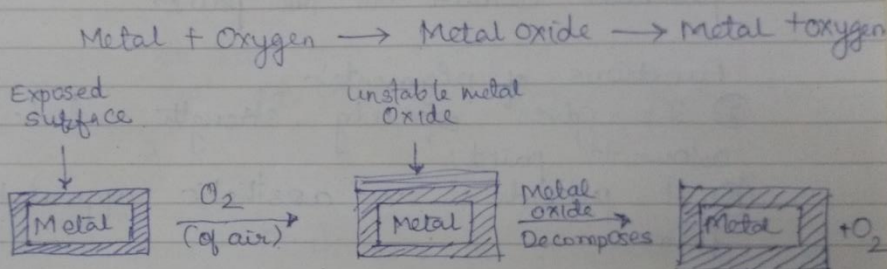 Metal + Oxygen → Metal oxide → Metal + oxygen
Exposed surface
Unstable metal Oxide
Metal
O2
(of air)
Metal
Metal oxide
Decomposes
Metal
+O2